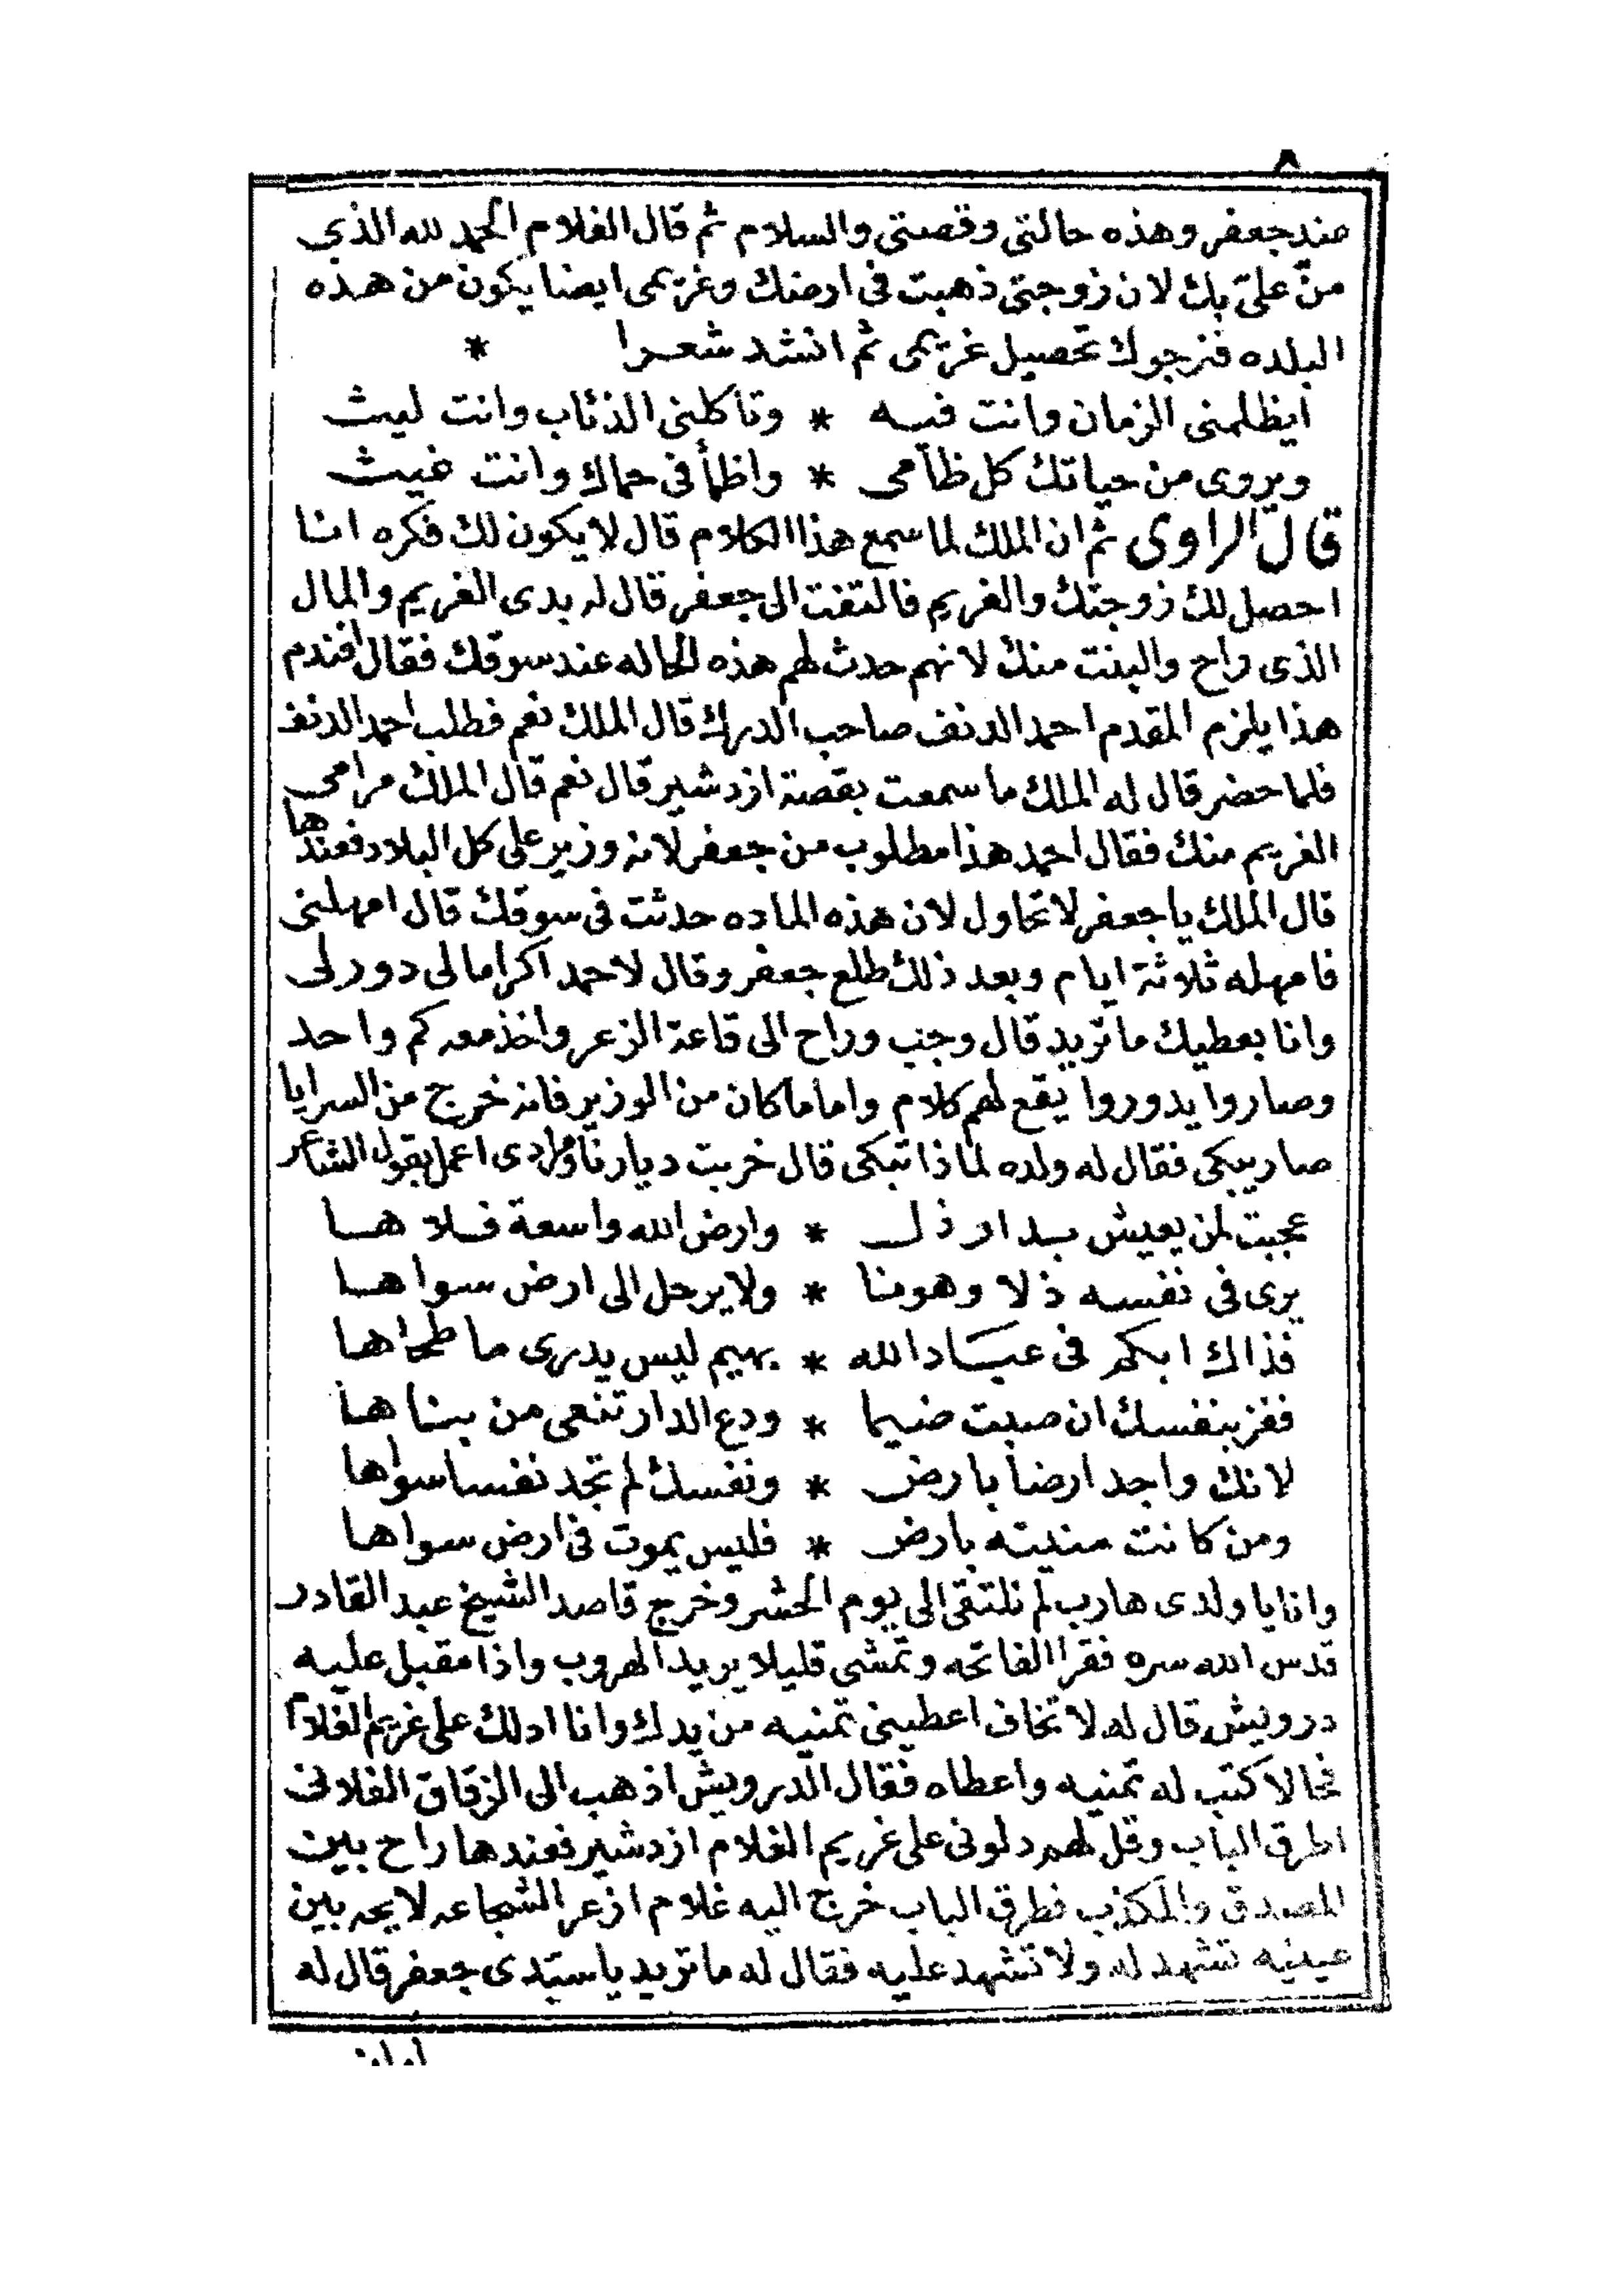 ٨
عند جعفر وهذه حالتى وقصتى والسلام ثم قال الغلام الحمد لله الذي
منّ علىّ بك لان زوجتى ذهبت فى ارضك وغريمى ايضا يكون من هذه
البلده فنرجوك تحصيل غريمى ثم انشد شعرا *
ايظلمنى الزمان وانت فيه * وتاكلنى الذئاب وانت ليث
ويروى من حياتك كل ظآمى * واظمأ فى حماك وانت غيث
قال الراوى ثم ان الملك لما سمع هذا الكلام قال لا يكون لك فكره انا
احصل لك زوجتك والغريم فالتفت الى جعفر قال له بدى الغريم والمال
الذى راح والبنت منك لانهم حدث لهم هذه الحاله عند سوقك فقال افندم
هذا يلزم المقدم احمد الدنف صاحب الدرك قال الملك نعم فطلب احمد الدنف
فلما حضر قال له الملك ما سمعت بقصة ازدشير قال نعم قال الملك مرامى
الغريم منك فقال احمد هذا مطلوب من جعفر لانه وزير على كل البلاد فعندها
قال الملك يا جعفر لا تحاول لان هذه الماده حدثت فى سوقك قال امهلنى
فامهله ثلاثة ايام وبعد ذلك طلع جعفر وقال لاحمد اكراما لى دور لى
وانا بعطيك ما تريد قال وجب وراح الى قاعة الزعر واخذ معه كم واحد
وصاروا يدوروا يقع لهم كلام واما ما كان من الوزير فانه خرج من السرايا
صار يبكى فقال له ولده لماذا تبكى قال خربت ديارنا ومرادى اعمل بقول الشاعر
عجبت لمن يعيش بدار ذل * وارض الله واسعة فلاها
يرى فى نفسه ذلا وهونا * ولا يرحل الى ارض سواها
فذاك ابكم فى عباد الله * بهيم ليس يدرى ما طحاها
ففز بنفسك ان صبت ضيما * ودع الدار تنعى من بناها
لانك واجد ارضا بارض * ونفسك لم تجد نفسا سواها
ومن كانت منيته بارض * فليس يموت فى ارض سواها
وانا يا ولدى هارب لم نلتقى الى يوم الحشر وخرج قاصد الشيخ عبد القادر
قدس الله سره فقرا الفاتحه وتمشى قليلا يريد الهروب واذا مقبل عليه
درويش قال له لا تخاف اعطينى تمنيه من يدك وانا ادلك على غريم الغلام
فحالا كتب له تمنيه واعطاه فقال الدرويش اذهب الى الزقاق الفلانى
اطرق الباب وقل لهم دلونى على غريم الغلام ازدشير فعندها راح بين
المصدق والمكذب فطرق الباب خرج اليه غلام ازعر الشجاعه لايحه بين
عينيه تشهد له ولا تشهد عليه فقال له ما تريد يا سيدى جعفر قال له